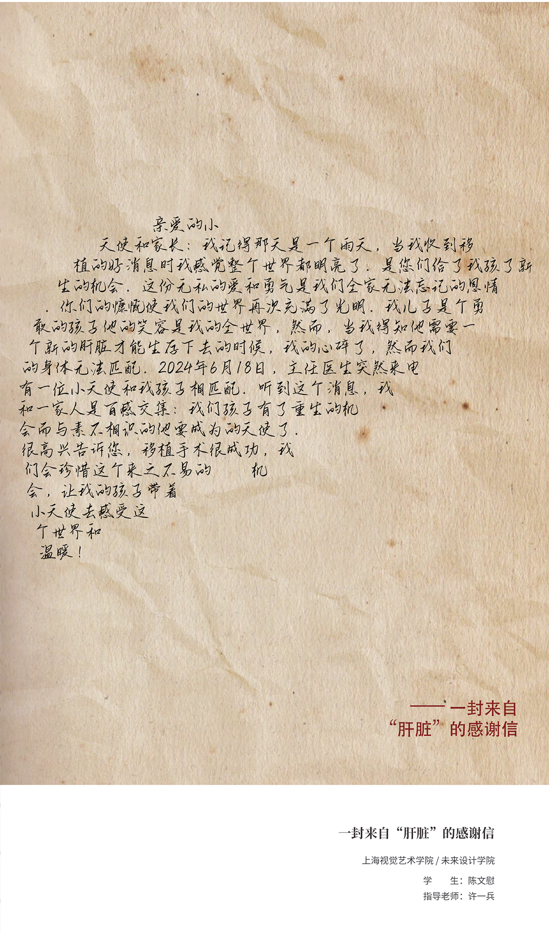 亲爱的小
天使和家长：我记得那天是一个雨天，当我收到移
植的好消息时我感觉整个世界都明亮了．是您们给了我孩子新
生的机会．这份无私的爱和勇气是我们全家无法忘记的恩情
．你们的慷慨使我们的世界再次充满了光明．我儿子是个勇
敢的孩子他的笑容是我的全世界，然而，当我得知他需要一
个新的肝脏才能生存下去的时候，我的心碎了，然而我们
的身体无法匹配．2024年6月18日，主任医生突然来电
有一位小天使和我孩子相匹配．听到这个消息，我
和一家人是百感交集：我们孩子有了重生的机
会而与素不相识的他要成为的天使了．
很高兴告诉您，移植手术很成功，我
们会珍惜这个来之不易的 机
会，让我的孩子带着
小天使去感受这
个世界和
温暖！
——一封来自
“肝脏”的感谢信
一封来自“肝脏”的感谢信
上海视觉艺术学院 / 未来设计学院
学 生：陈文慰
指导老师：许一兵